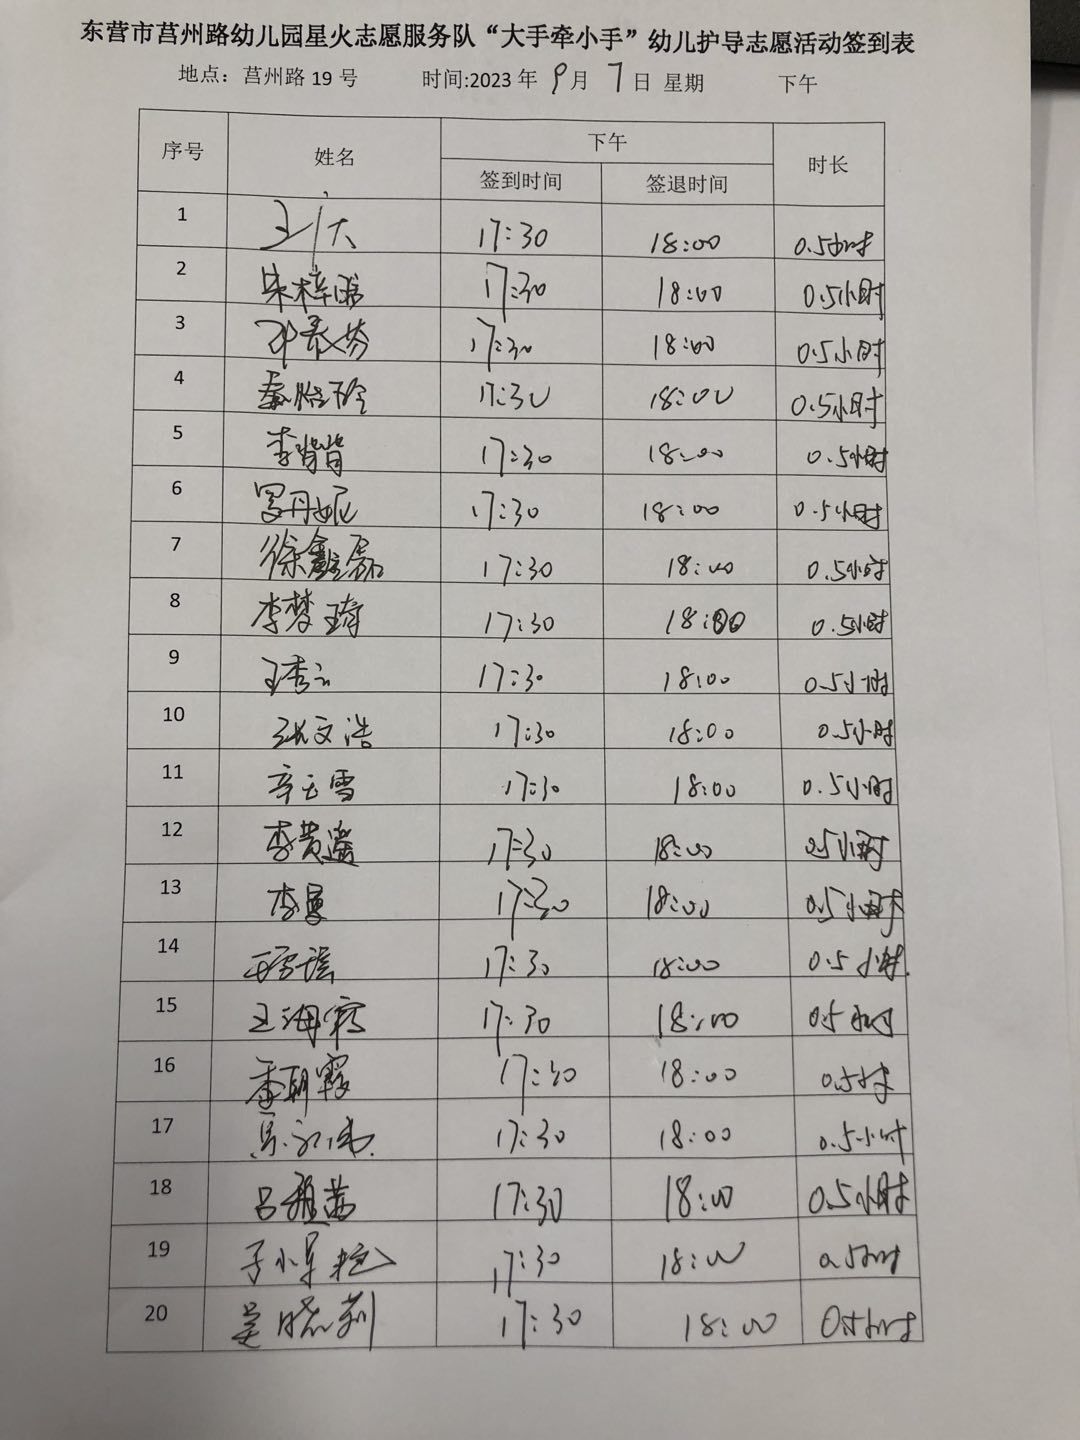 东营市莒州路幼儿园星火志愿服务队“大手牵小手”幼儿护导志愿活动签到表
地点：莒州路 19 号 时间:2023 年 9 月 7 日 星期 下午
序号 姓名 下午 时长
签到时间 签退时间
1 17:30 18:00 0.5小时
2 朱梓 17:30 18:00 0.5小时
3 17:30 18:00 0.5小时
4 秦怡玲 17:30 18:00 0.5小时
5 李肖肖 17:30 18:00 0.5小时
6 罗丹妮 17:30 18:00 0.5小时
7 徐鑫磊 17:30 18:00 0.5小时
8 李梦琦 17:30 18:00 0.5小时
9 王秀云 17:30 18:00 0.5小时
10 张文浩 17:30 18:00 0.5小时
11 辛玉雪 17:30 18:00 0.5小时
12 李黄 17:30 18:00 0.5小时
13 李曼 17:30 18:00 0.5小时
14 17:30 18:00 0.5小时
15 王海霞 17:30 18:00 0.5小时
16 季朝霞 17:30 18:00 0.5时
17 17:30 18:00 0.5小时
18 吕雅茜 17:30 18:00 0.5小时
19 17:30 18:00 0.5小时
20 吴晓莉 17:30 18:00 0.5小时